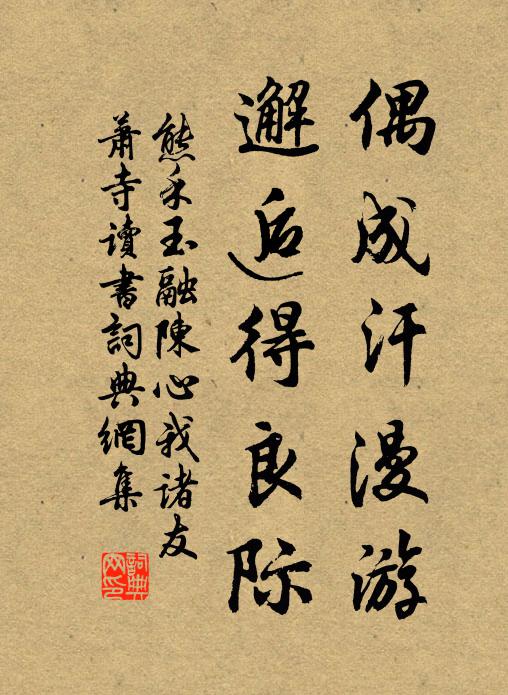 偶成汗漫游
邂逅得良际
熊禾玉融陳心我諸友
蕭寺讀書詞典網集
詞典網印